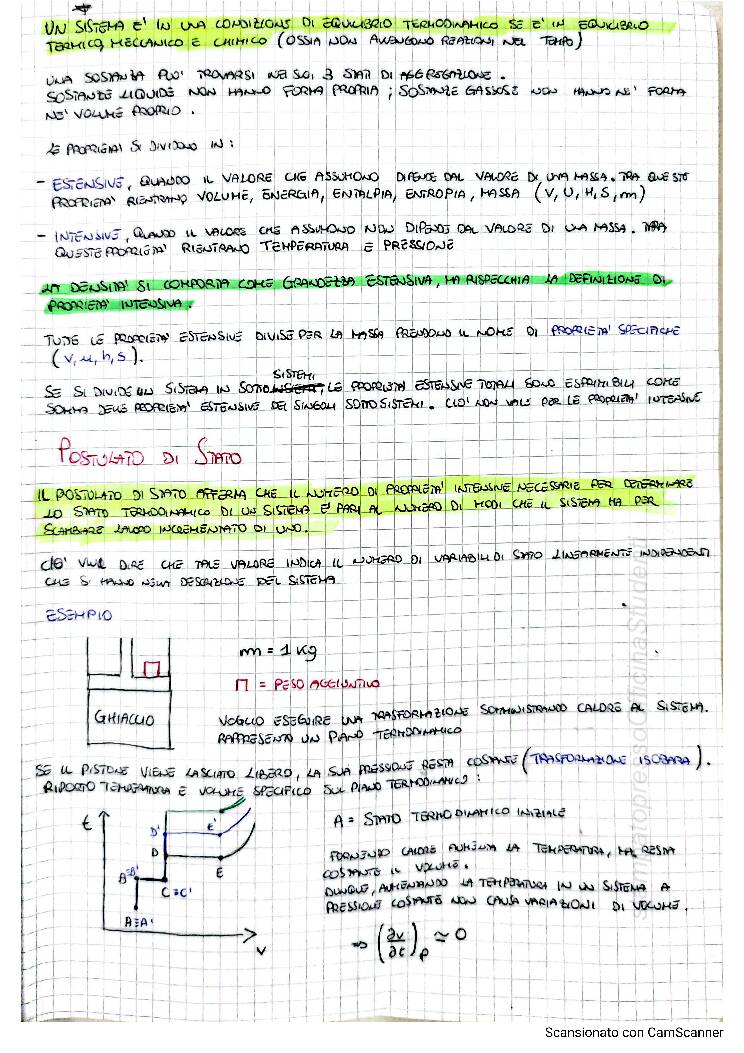 UN SISTEMA E' IN UNA CONDIZIONE DI EQUILIBRIO TERMODINAMICO SE E' IN EQUILIBRIO
TERMICO, MECCANICO E CHIMICO (OSSIA NON AVVENGONO REAZIONI NEL TEMPO)
UNA SOSTANZA PUO' TROVARSI NEI SOLI 3 STATI DI AGGREGAZIONE.
SOSTANZE LIQUIDE NON HANNO FORMA PROPRIA; SOSTANZE GASSOSE NON HANNO NE' FORMA
NE' VOLUME PROPRIO.
LE PROPRIETA' SI DIVIDONO IN:
- ESTENSIVE, QUANDO IL VALORE CHE ASSUMONO DIPENDE DAL VALORE DI UNA MASSA. TRA QUESTE
PROPRIETA' RIENTRANO VOLUME, ENERGIA, ENTALPIA, ENTROPIA, MASSA (V, U, H, S, m)
- INTENSIVE, QUANDO IL VALORE CHE ASSUMONO NON DIPENDE DAL VALORE DI UNA MASSA. TRA
QUESTE PROPRIETA' RIENTRANO TEMPERATURA E PRESSIONE
LA DENSITA' SI COMPORTA COME GRANDEZZA ESTENSIVA, MA RISPECCHIA LA DEFINIZIONE DI
PROPRIETA' INTENSIVA.
TUTTE LE PROPRIETA' ESTENSIVE DIVISE PER LA MASSA PRENDONO IL NOME DI PROPRIETA' SPECIFICHE
(v, u, h, s).
SISTEMI
SE SI DIVIDE UN SISTEMA IN SOTTO, LE PROPRIETA' ESTENSIVE TOTALI SONO ESPRIMIBILI COME
SOMMA DELLE PROPRIETA' ESTENSIVE DEI SINGOLI SOTTOSISTEMI. CIO' NON VALE PER LE PROPRIETA' INTENSIVE
POSTULATO DI STATO
IL POSTULATO DI STATO AFFERMA CHE IL NUMERO DI PROPRIETA' INTENSIVE NECESSARIE PER DETERMINARE
LO STATO TERMODINAMICO DI UN SISTEMA E' PARI AL NUMERO DI MODI CHE IL SISTEMA HA PER
SCAMBIARE LAVORO INCREMENTATO DI UNO.
CIO' VUOL DIRE CHE TALE VALORE INDICA IL NUMERO DI VARIABILI DI STATO LINEARMENTE INDIPENDENTI
CHE SI HANNO NELLA DESCRIZIONE DEL SISTEMA.
ESEMPIO
m = 1 Kg
Π = PESO AGGIUNTIVO
GHIACCIO
VOGLIO ESEGUIRE UNA TRASFORMAZIONE SOMMINISTRANDO CALORE AL SISTEMA.
RAPPRESENTO UN PIANO TERMODINAMICO
SE IL PISTONE VIENE LASCIATO LIBERO, LA SUA PRESSIONE RESTA COSTANTE (TRASFORMAZIONE ISOBARA).
RIPORTO TEMPERATURA E VOLUME SPECIFICO SUL PIANO TERMODINAMICO:
t
D' E'
D E
B≡B' C≡C'
A≡A'
v
A = STATO TERMODINAMICO INIZIALE
FORNENDO CALORE AUMENTA LA TEMPERATURA, MA RESTA
COSTANTE IL VOLUME.
DUNQUE, AUMENTANDO LA TEMPERATURA IN UN SISTEMA A
PRESSIONE COSTANTE NON CAUSA VARIAZIONI DI VOLUME.
⇒ (∂v/∂t)p ≃ 0
Scansionato con CamScanner